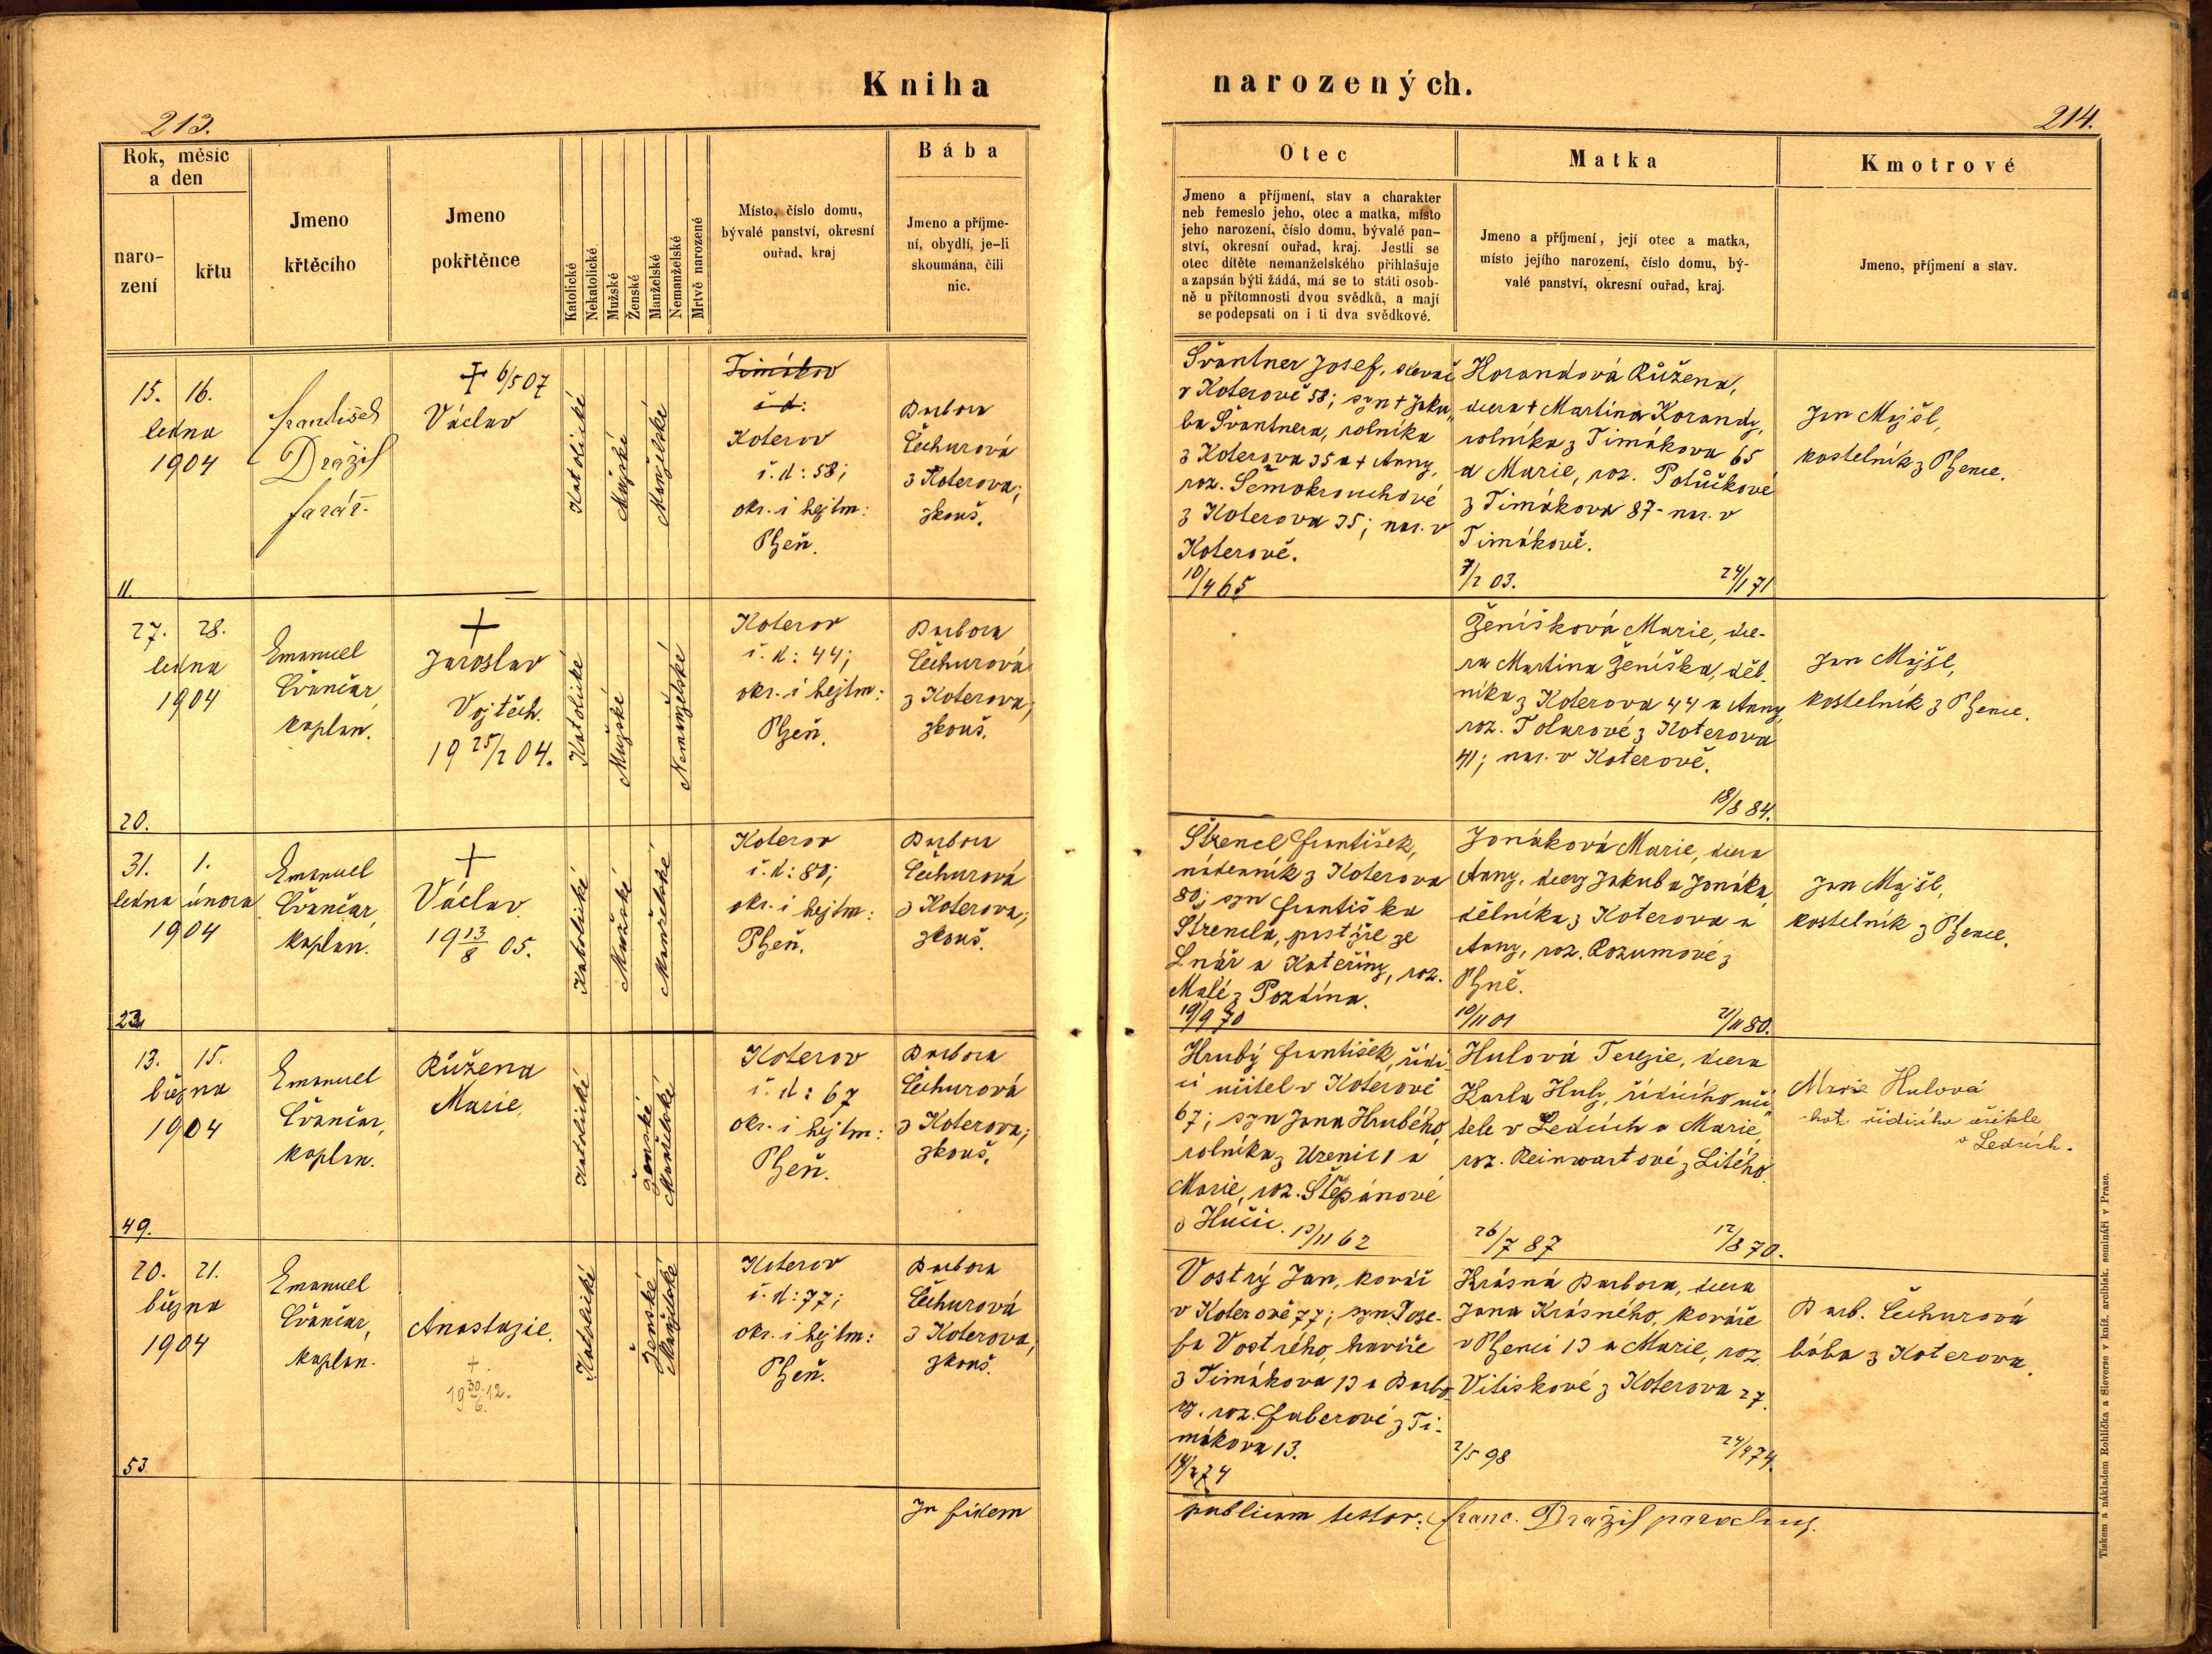 Kniha
narozených.
213.
214.
Rok, měsíc
a den
naro-
zení
křtu
Jmeno
křtěcího
Jmeno
pokřtěnce
Katolické
Nekatolické
Mužské
Ženské
Manželské
Nemanželské
Mrtvě narozené
Místo, číslo domu,
bývalé panství, okresní
ouřad, kraj
Bába
Jmeno a příjme-
ní, obydlí, je-li
skoumána, čili
nic.
Otec
Jmeno a příjmení, stav a charakter
neb řemeslo jeho, otec a matka, místo
jeho narození, číslo domu, bývalé pan-
ství, okresní ouřad, kraj. Jestli se
otec dítěte nemanželského přihlašuje
a zapsán býti žádá, má se to státi osob-
ně u přítomnosti dvou svědků, a mají
se podepsati on i ti dva svědkové.
Matka
Jmeno a příjmení, její otec a matka,
místo jejího narození, číslo domu, bý-
valé panství, okresní ouřad, kraj.
Kmotrové
Jmeno, příjmení a stav.
15. 16.
ledna
1904
11.
František
Dražil
farář
+ 6/5 07
Václav
Katolické
Mužské
Manželské
Timákov
č. d:
Koterov
č. d: 58;
okr. i hejtm:
Plzeň.
Barbora
Čechurová
z Koterova;
zkouš.
Švantner Josef, slevač
v Koterově 58; syn + Jaku„
ba Švantnera, rolníka
z Koterova 35 a + Anny,
roz. Šemokrouchové
z Koterova 35; nar. v
Koterově.
10/4 65
Korandová Růžena,
dcera + Martina Korandy,
rolníka z Timákova 65
a Marie, roz. Potůčkové
z Timákova 87 - nar. v
Timákově.
7/2 03. 24/1 71
Jan Majšl,
kostelník z Plzence.
27. 28.
ledna
1904
20.
Emanuel
Cvančar,
kaplan.
+
Jaroslav
Vojtěch.
19 25/2 04.
Katolické
Mužské
Nemanželské
Koterov
č. d: 44;
okr. i hejtm:
Plzeň.
Barbora
Čechurová
z Koterova;
zkouš.
Ženíšková Marie, dce-
ra Martina Ženíška, děl-
níka z Koterova 44 a Anny,
roz. Tolarové z Koterova
41; nar. v Koterově.
18/8 84.
Jan Majšl,
kostelník z Plzence.
31. 1.
ledna února
1904
23
Emanuel
Cvančar,
kaplan.
+
Václav
19 13/8 05.
Katolické
Mužské
Manželské
Koterov
č. d: 80;
okr. i hejtm:
Plzeň.
Barbora
Čechurová
z Koterova;
zkouš.
Štrencl František,
nádenník z Koterova
80; syn Františka
Štrencla, pastýře ze
Lnář a Kateřiny, roz.
Malé z Pozdína.
19/9 70
Jonáková Marie, dcera
Anny, dcery Jakuba Jonáka,
dělníka z Koterova a
Anny, roz. Rozumové z
Plzně.
10/11 01 21/11 80.
Jan Majšl,
kostelník z Plzence.
13. 15.
března
1904
49.
Emanuel
Cvančar,
kaplan.
Růžena
Marie.
Katolické
Ženské
Manželské
Koterov
č. d: 67
okr. i hejtm:
Plzeň.
Barbora
Čechurová
z Koterova;
zkouš.
Hrubý František, řídí-
cí učitel v Koterově
67; syn Jana Hrubého,
rolníka z Uzenic 1 a
Marie, roz. Štěpánové
z Hučic. 13/11 62
Hulová Terezie, dcera
Karla Huly, řídícího uči„
tele v Ledcích a Marie,
roz. Reinwartové z Litého.
26/7 87 12/8 70.
Marie Hulová
chot řídícího učitele
v Ledcích.
20. 21.
března
1904
53
Emanuel
Cvančar,
kaplan.
Anastazie.
+
19 30/6. 12.
Katolické
Ženské
Manželské
Koterov
č. d: 77;
okr. i hejtm:
Plzeň.
Barbora
Čechurová
z Koterova;
zkouš.
Vostrý Jan, kovář
v Koterově 77; syn Jose-
fa Vostrého, havíře
z Timákova 13 a Barbo-
ry, roz. Faberové z Ti-
mákova 13.
Krásná Barbora, dcera
Jana Krásného, kováře
v Plzenci 13 a Marie, roz.
Vitiskové z Koterova 27.
2/5 98 24/4 74.
Barb. Čechurová
bába z Koterova.
In fidem
publicam testor: Franc. Dražil parochus.
Tiskem a nákladem Rohlíčka a Sieverse v kníž. arcibisk. semináři v Praze.